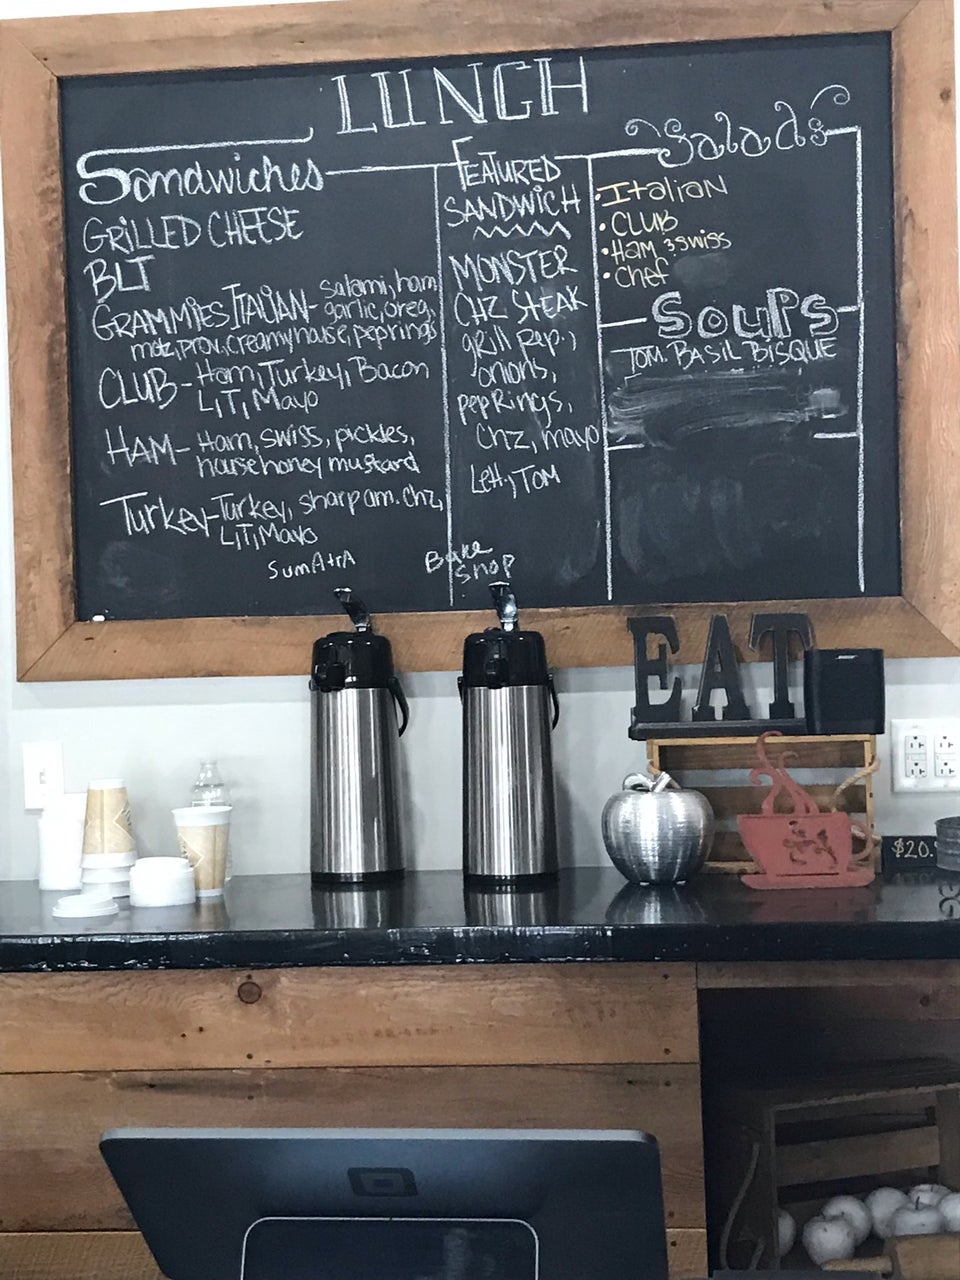 LUNCH
Sandwiches
GRILLED CHEESE
BLT
GRAMMIES ITALIAN- salami, ham,
garlic, oreg,
moz, prov, creamy house, pep rings
CLUB- Ham, Turkey, Bacon
L, T, Mayo
HAM- Ham, swiss, pickles,
house honey mustard
Turkey-Turkey, sharp am. chz,
L, T, Mayo
SumAtrA
FEATURED
SANDWICH
MONSTER
CHZ STEAK
grill pep.,
onions,
pep Rings,
Chz, mayo
Lett., TOM
Bake
Shop
Salads
• Italian
• CLUB
• Ham & swiss
• Chef
SOUPS
TOM. BASIL BISQUE
EAT
BOSE
$20.